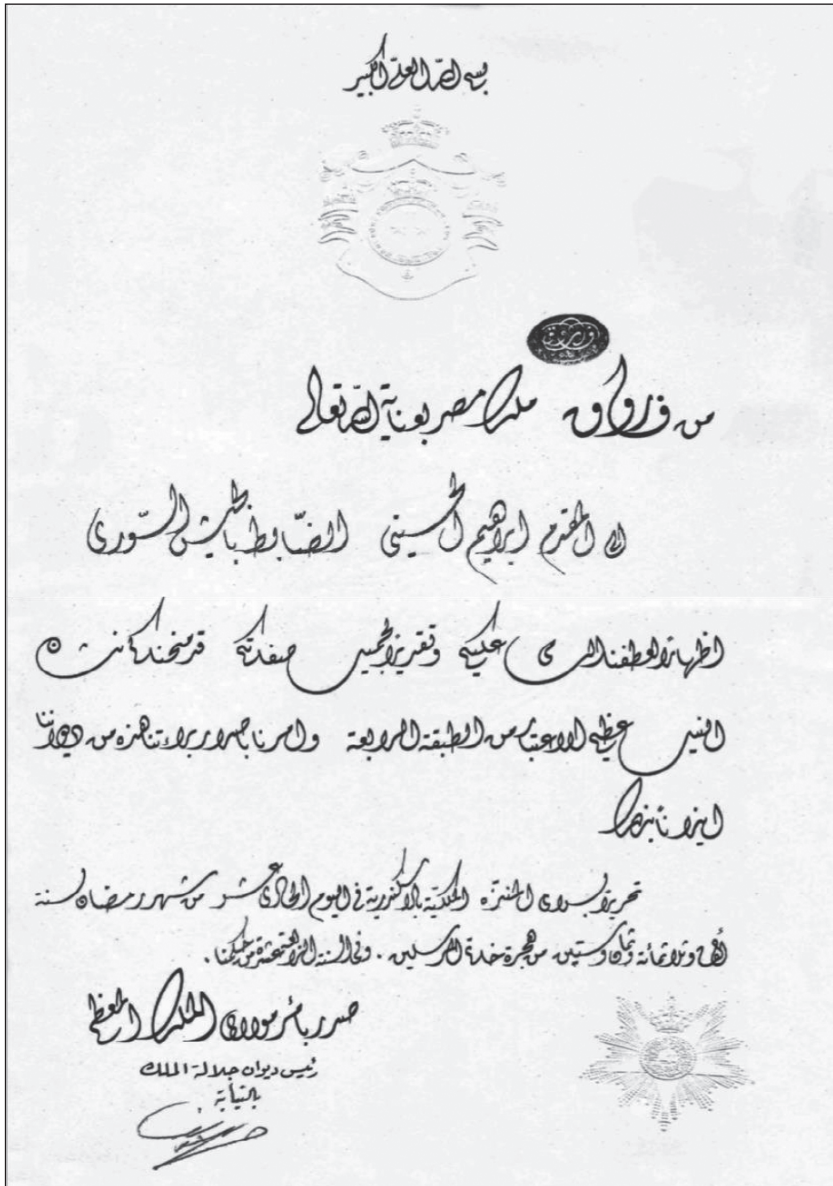 بسم الله العلي الكبير
فاروق
من فاروق ملك مصر بعناية الله تعالى
الى المقدم ابراهيم الحسيني الضابط بالجيش السوري
اظهارا لعطفنا السامي عليكم وتقديرا لجميل صفاتكم قد منحناكم نشان
النيل عظيم الاعتبار من الطبقة الرابعة وامرنا باصدار براءتنا هذه من ديواننا
ايذانا بذلك
تحريرا بسراى المنتزه الملكية بالاسكندرية في اليوم الحادى عشر من شهر رمضان لسنة
ألف وثلاثمائة وثمان وستين من هجرة خاتم المرسلين . وفى السنة الرابعة عشرة من حكمنا .
صدر بأمر مولاى الملك المعظم
رئيس ديوان جلالة الملك
بالنيابة